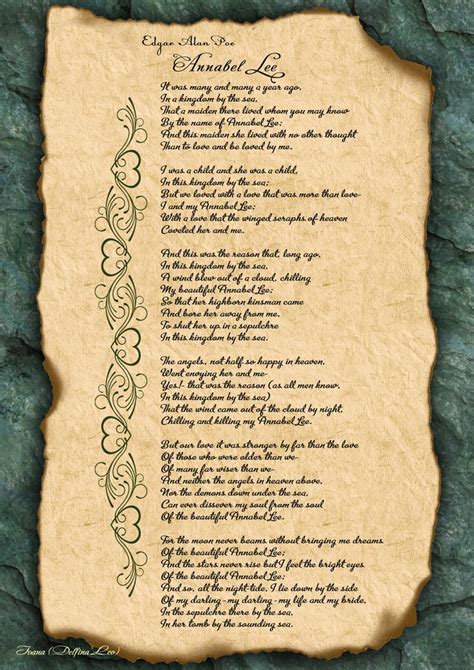 Edgar Alan Poe
Annabel Lee
It was many and many a year ago,
In a kingdom by the sea,
That a maiden there lived whom you may know
By the name of Annabel Lee;
And this maiden she lived with no other thought
Than to love and be loved by me.
I was a child and she was a child,
In this kingdom by the sea;
But we loved with a love that was more than love-
I and my Annabel Lee;
With a love that the winged seraphs of heaven
Coveted her and me.
And this was the reason that, long ago,
In this kingdom by the sea,
A wind blew out of a cloud, chilling
My beautiful Annabel Lee;
So that her highborn kinsman came
And bore her away from me,
To shut her up in a sepulchre
In this kingdom by the sea.
The angels, not half so happy in heaven,
Went envying her and me-
Yes!- that was the reason (as all men know,
In this kingdom by the sea)
That the wind came out of the cloud by night,
Chilling and killing my Annabel Lee.
But our love it was stronger by far than the love
Of those who were older than we-
Of many far wiser than we-
And neither the angels in heaven above,
Nor the demons down under the sea,
Can ever dissever my soul from the soul
Of the beautiful Annabel Lee.
For the moon never beams without bringing me dreams
Of the beautiful Annabel Lee;
And the stars never rise but I feel the bright eyes
Of the beautiful Annabel Lee;
And so, all the night-tide, I lie down by the side
Of my darling-my darling-my life and my bride,
In the sepulchre there by the sea,
In her tomb by the sounding sea.
Ioana (Delfina Leo)